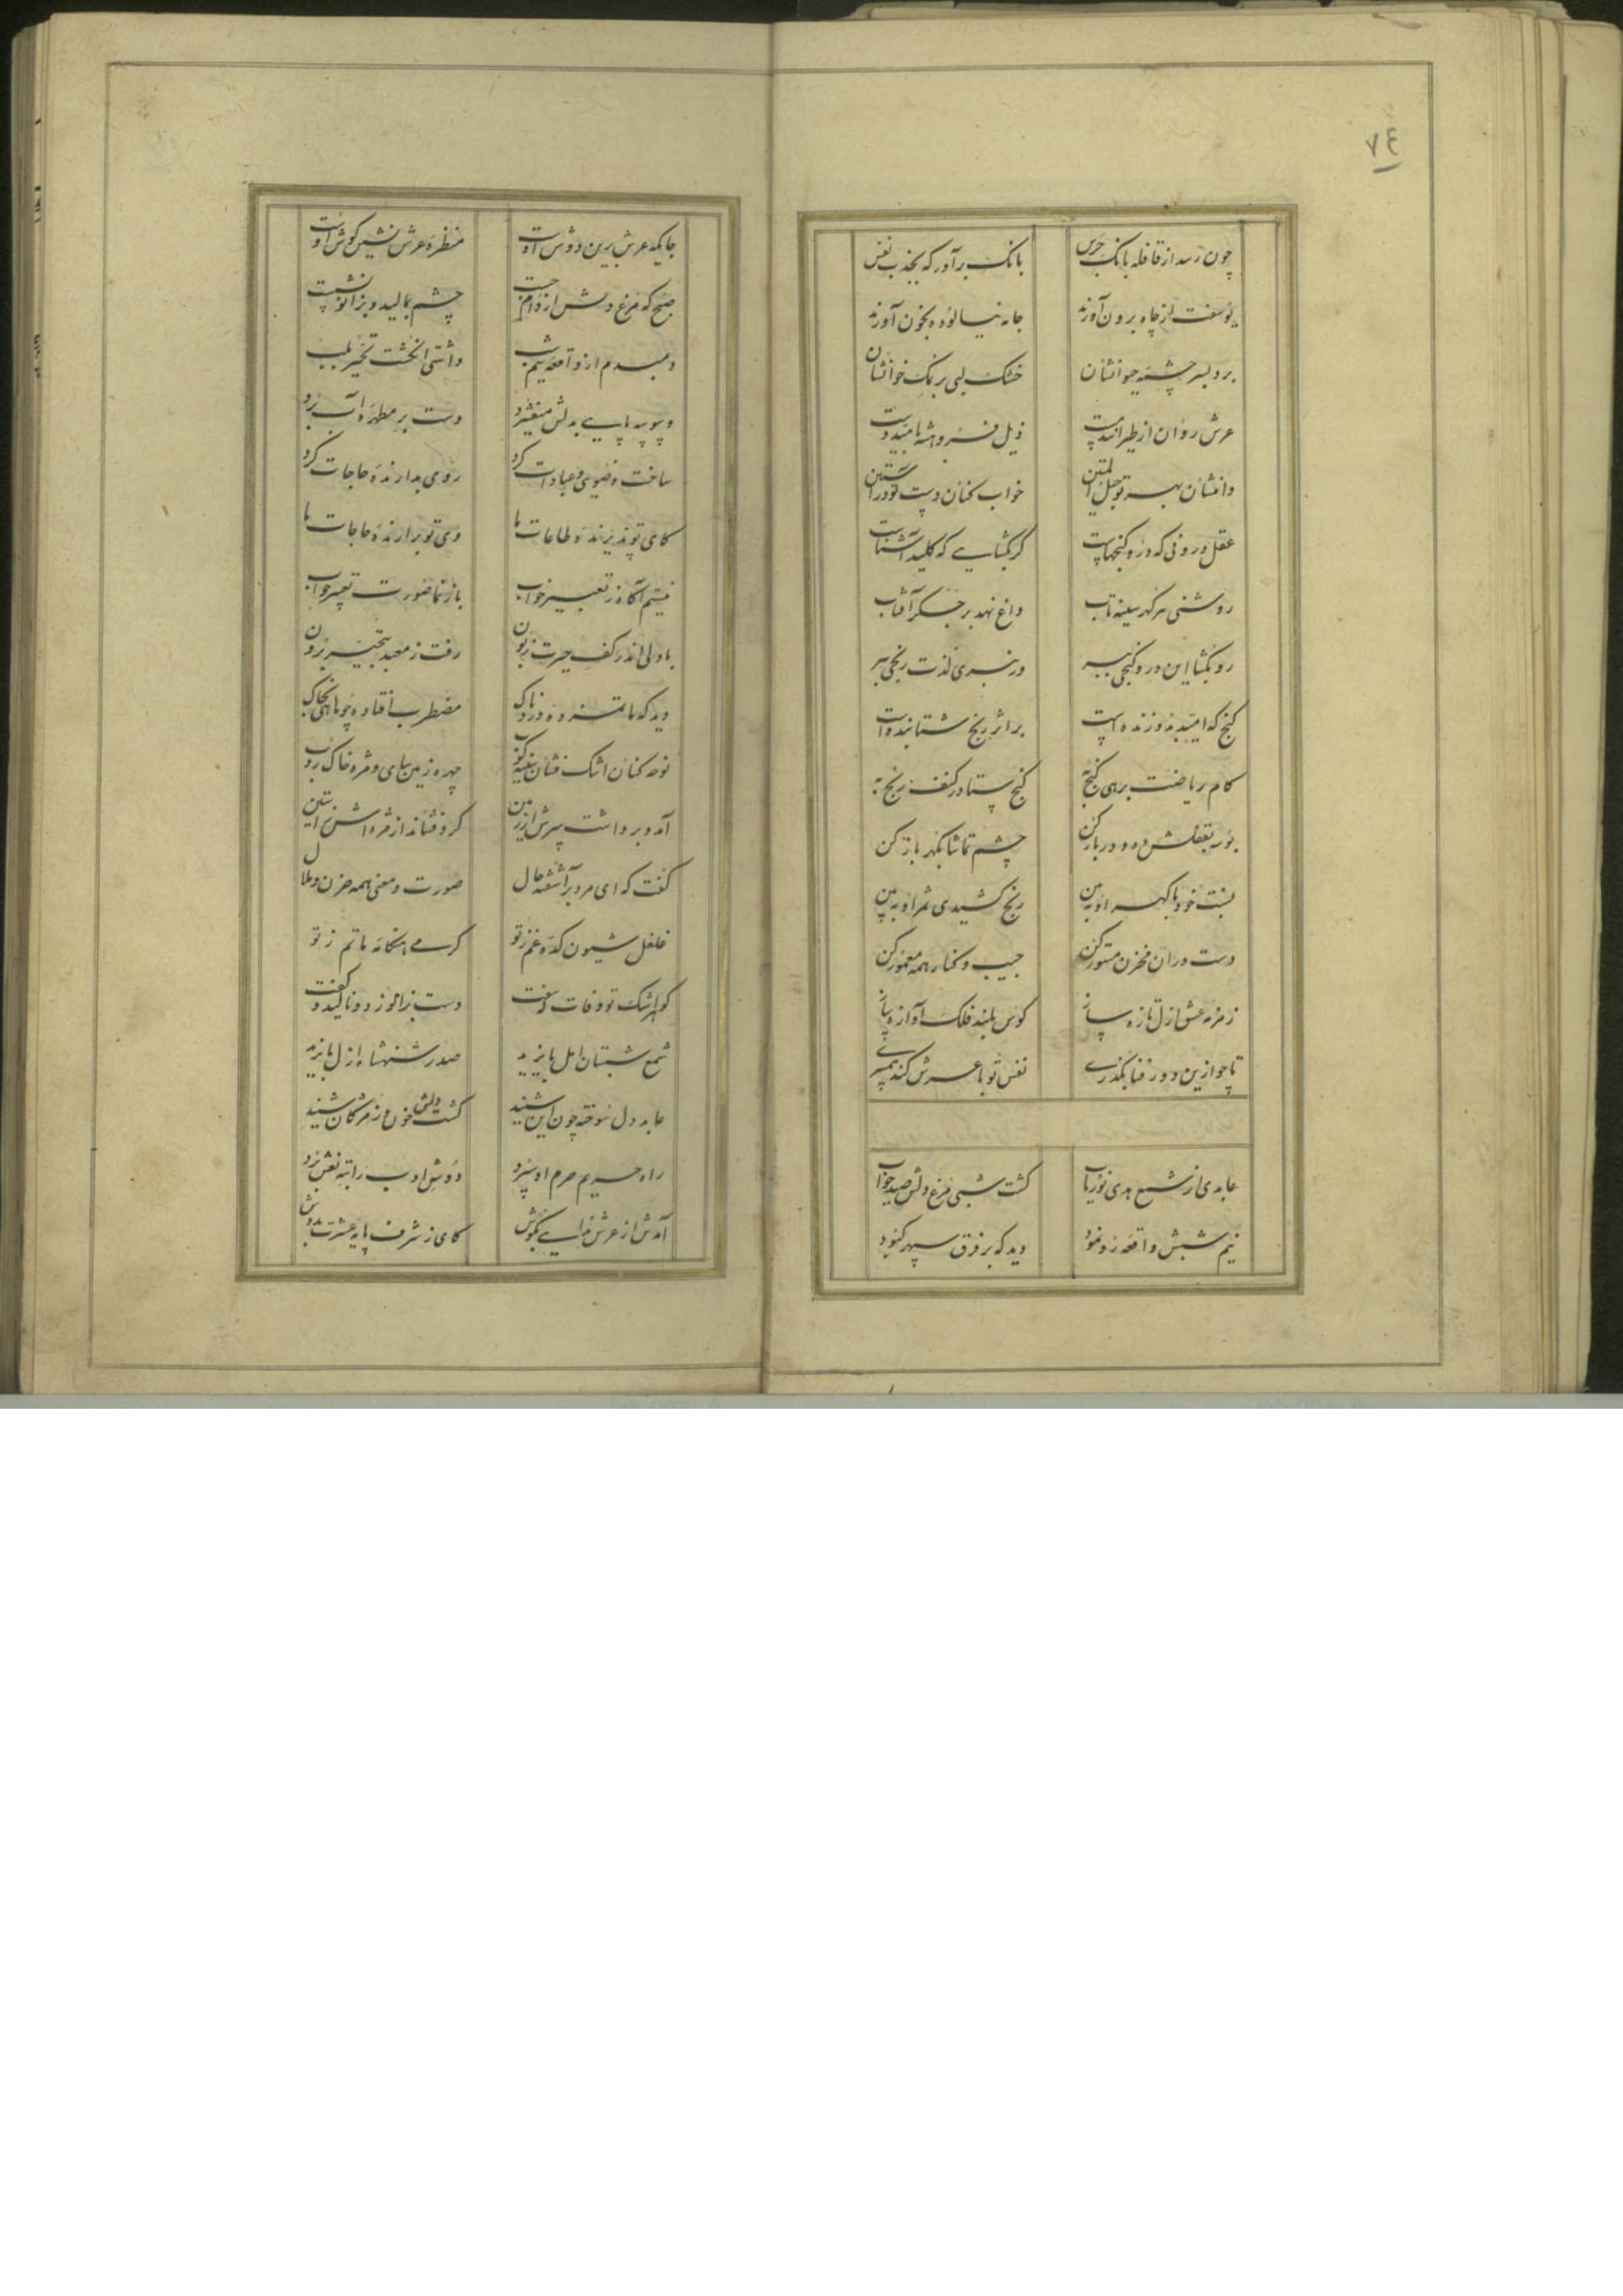 ٧٤
چون رسد از قافله بانک جرس بانک برآور که بجذب نفس
یوسفت از چاه برون آورند جامه نیالوده بخون آورند
برد بسر چشمه حیوانشان خشک لبی بر نمک خوانشان
عرش روان از طیرانند پست ذیل فروهشته بامید دست
دامنشان بهر تو حبل المتین خواب کنان دست تو در آستین
عقل درونی که درو کنجهاست کر بکشایی که کلید آشناست
روشنی هر کهر سینه تاب داغ نهد بر جکر آفتاب
رو بکشا این در و کنجی ببر ور نبری لذت رنجی ببر
کنج که امید بدو زنده است بر اثر رنج شتابنده است
کام ریاضت برهی کنج به کنج ستا در کنف رنج به
بوسه بقفلش ده و در باز کن چشم تماشا بکهر باز کن
نسبت خود با کهر او ببین رنج کشیدی ثمر او ببین
دست در آن مخزن مستور کن جیب و کنار همه معمور کن
زمزمه عشق ازل تازه ساز کوس بلند فلک آوازه ساز
تا چو ازین دور فنا بکذری نفس تو با عرش کند همسری
عابدی از شمع هدی نوریاب کشت شبی مرغ دلش صید خواب
نیم شبش واقعه رو نمود دید که بر فرق سپهر کبود
جایکه عرش برین دوش اوست منظره عرش نشین کوش اوست
صبح که مرغ دلش از دام جست چشم بمالید و بزانو نشست
دمبدم از واقعه نیم شب داشتی انکشت تحیر بلب
وسوسه پایی بدلش میفشرد دست بر مطهره آب برد
ساخت وضویی و عبادات کرد روی بدارنده حاجات کرد
کای تو پذیرنده طاعات ما وی تو برارنده حاجات ما
نیستم آکاه ز تعبیر خواب باز نما صورت تعبیر خواب
با دلی اندر کف حیرت زبون رفت ز معبد بتحیر برون
دید که ماتمزده دردناک مضطرب افتاده چو ماهی بخاک
نوحه کنان اشک فشان سینه کوب چهره زمین سای و مژه خاک روب
آمد و برداشت سرش از زمین کرد فشاند از مژه اش ز آستین
کفت که ای مرد بر آشفته حال صورت و معنی همه حزن و ملال
غلغل شیون کده غم ز تو کرمی هنکامه ماتم ز تو
کوهر اشک تو وفات که سفت دست بزانو زد و نالید و کفت
شمع شبستان امل بایزید صدر شهنشاه ازل بایزید
عابد دل سوخته چون این شنید کشت دلش خون و ز مژکان چکید
راه حریم حرم او سپرد دوش ادب را بته نعش برد
آمدش از عرش ندایی بکوش کای ز شرف پایه عشرت بدوش